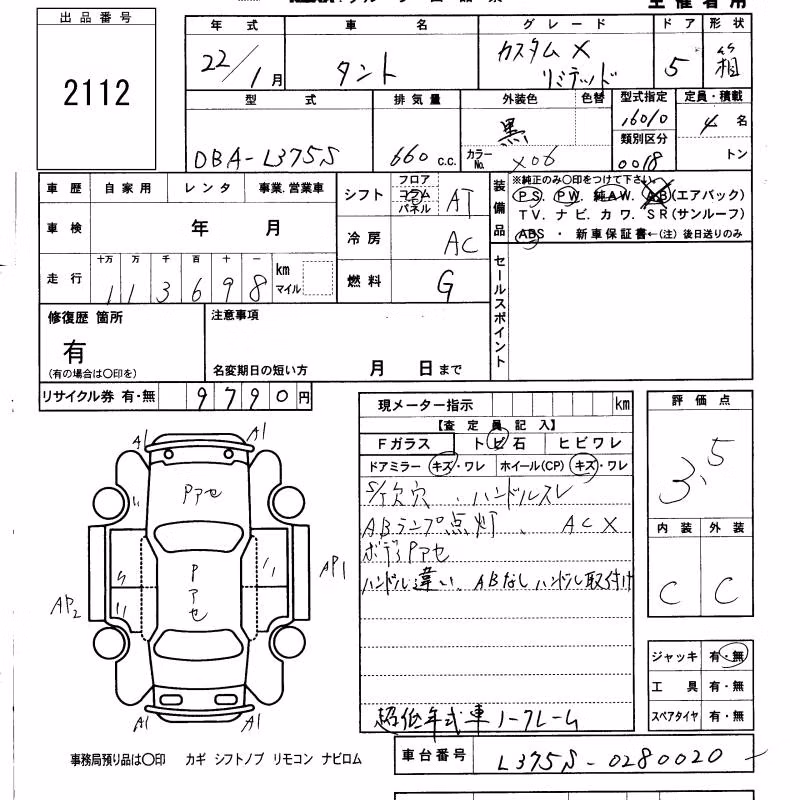 出品番号
2112
年式 車名 グレード ドア 形状
22/1月 タント カスタム X リミテッド 5 箱
型式 排気量 外装色 色替 型式指定 定員・積載
DBA-L375S 660 c.c. 黒 カラーNo. X06 16010 類別区分 0018 4名 トン
車歴 自家用 レンタ 事業.営業車
車検 年 月
走行 十万 万 千 百 十 一 km マイル
113698
シフト フロア コラム パネル AT
冷房 AC
燃料 G
装備品
※純正のみ〇印をつけて下さい
PS. PW. 純AW. AB(エアバック)
TV. ナビ. カワ. SR(サンルーフ)
ABS ・ 新車保証書←(注)後日送りのみ
セールスポイント
修復歴 箇所
有
(有の場合は〇印を)
注意事項
名変期日の短い方 月 日まで
リサイクル券 有・無 9790円
現メーター指示 km
【査定員記入】
Fガラス トビ石 ヒビワレ
ドアミラー キズ・ワレ ホイール(CP) キズ・ワレ
S/欠穴 、ハンドルスレ
ABランプ点灯、ACX
ボディPアセ
ハンドル違い、ABなしハンドル取付け
超低年式車 ノークレーム
評価点
3.5
内装 外装
C C
ジャッキ 有・無
工具 有・無
スペアタイヤ 有・無
A1 A1
Pアセ
Pアセ
AP2 AP1
A1 A1
事務局預り品は〇印 カギ シフトノブ リモコン ナビロム
車台番号 L375S-0280020